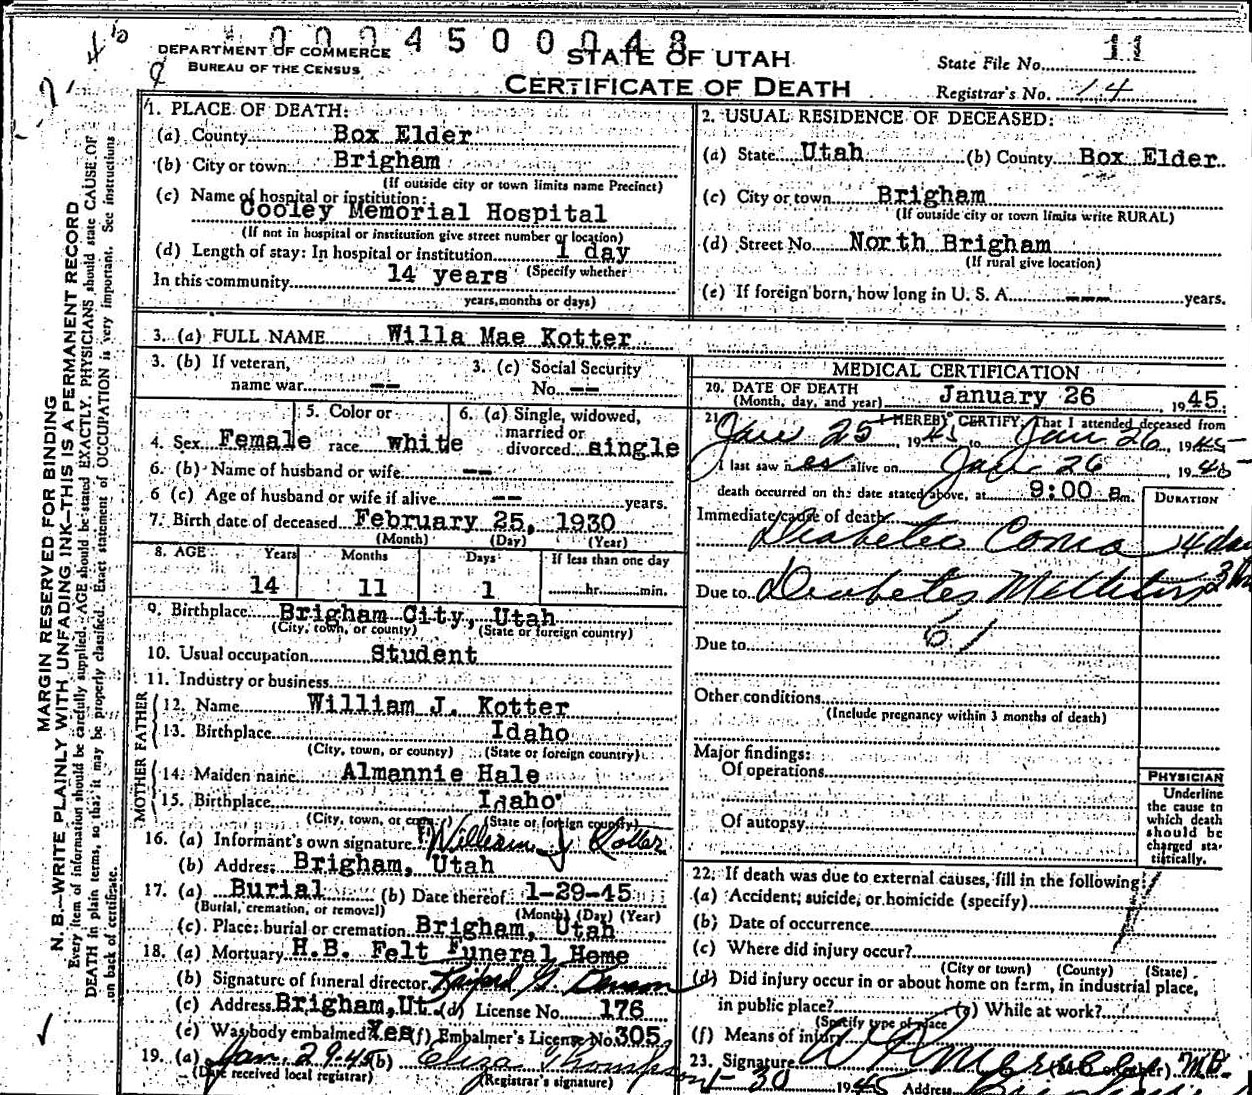 0 0 0 4 5 0 0 0 4 8
DEPARTMENT OF COMMERCE
BUREAU OF THE CENSUS
STATE OF UTAH
CERTIFICATE OF DEATH
State File No. 11
Registrar's No. 14
MARGIN RESERVED FOR BINDING
N. B.—WRITE PLAINLY WITH UNFADING INK—THIS IS A PERMANENT RECORD
Every item of information should be carefully supplied. AGE should be stated EXACTLY. PHYSICIANS should state CAUSE OF
DEATH in plain terms, so that it may be properly classified. Exact statement of OCCUPATION is very important. See instructions
on back of certificate.
1. PLACE OF DEATH:
(a) County Box Elder
(b) City or town Brigham
(If outside city or town limits name Precinct)
(c) Name of hospital or institution:
Cooley Memorial Hospital
(If not in hospital or institution give street number or location)
(d) Length of stay: In hospital or institution 1 day
(Specify whether
In this community 14 years
years, months or days)
2. USUAL RESIDENCE OF DECEASED:
(a) State Utah (b) County Box Elder
(c) City or town Brigham
(If outside city or town limits write RURAL)
(d) Street No. North Brigham
(If rural give location)
(e) If foreign born, how long in U. S. A. --- years.
3. (a) FULL NAME Willa Mae Kotter
3. (b) If veteran, name war --
3. (c) Social Security No. --
4. Sex Female
5. Color or race white
6. (a) Single, widowed, married or divorced single
6. (b) Name of husband or wife --
6 (c) Age of husband or wife if alive -- years.
7. Birth date of deceased February 25, 1930
(Month) (Day) (Year)
8. AGE Years Months Days If less than one day
14 11 1 hr. min.
9. Birthplace Brigham City, Utah
(City, town, or county) (State or foreign country)
10. Usual occupation Student
11. Industry or business
FATHER
12. Name William J. Kotter
13. Birthplace Idaho
(City, town, or county) (State or foreign country)
MOTHER
14. Maiden name Almannie Hale
15. Birthplace Idaho
(City, town, or county) (State or foreign country)
16. (a) Informant's own signature William J Kotter
(b) Address Brigham, Utah
17. (a) Burial (b) Date thereof 1-29-45
(Burial, cremation, or removal) (Month) (Day) (Year)
(c) Place: burial or cremation Brigham, Utah
18. (a) Mortuary H.B. Felt Funeral Home
(b) Signature of funeral director
(c) Address Brigham, Ut. (d) License No. 176
(e) Was body embalmed? Yes (f) Embalmer's License No. 305
19. (a) Jan. 29-45 (b) Eliza Thompson
(Date received local registrar) (Registrar's signature)
MEDICAL CERTIFICATION
20. DATE OF DEATH
(Month, day, and year) January 26, 1945.
21. I HEREBY CERTIFY, That I attended deceased from
Jan 25, 1945 to Jan 26, 1945
I last saw her alive on Jan 26 1945
death occurred on the date stated above, at 9:00 a m.
DURATION
Immediate cause of death
Diabetic Coma 4 day
Due to Diabetes Mellitus
Due to 61
Other conditions
(Include pregnancy within 3 months of death)
Major findings:
Of operations
Of autopsy
PHYSICIAN
Underline
the cause to
which death
should be
charged sta-
tistically.
22. If death was due to external causes, fill in the following:
(a) Accident, suicide, or homicide (specify)
(b) Date of occurrence
(c) Where did injury occur?
(City or town) (County) (State)
(d) Did injury occur in or about home on farm, in industrial place,
in public place? (e) While at work?
(Specify type of place
(f) Means of injury
23. Signature M.D.
1-30 1945 Address